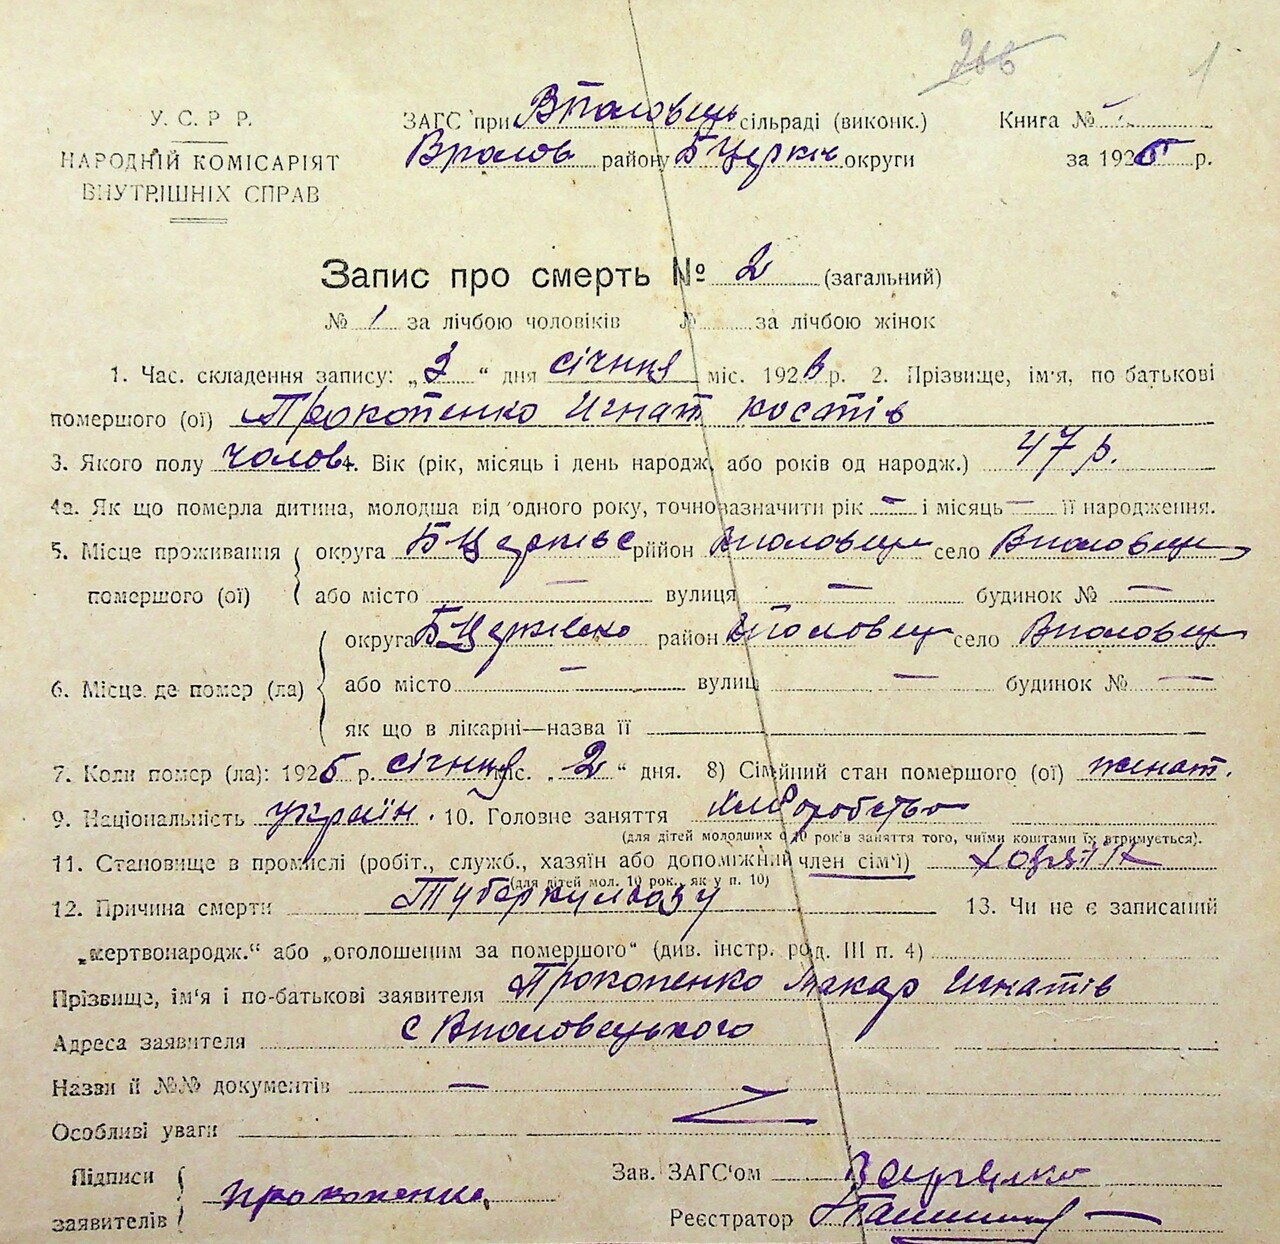 266 1
У. С. Р. Р.
НАРОДНІЙ КОМІСАРІЯТ
ВНУТРІШНІХ СПРАВ
ЗАГС при Вполовець сільраді (виконк.)
району БЦеркіс округи
Книга №
за 1926 р.
Запис про смерть № 2 (загальний)
№ 1 за лічбою чоловіків № за лічбою жінок
1. Час. складення запису: „3“ дня січння міс. 1926 р. 2. Прізвище, ім'я, по батькові
помершого (ої) Прокопенко Игнат костів
3. Якого полу чолов. Вік (рік, місяць і день народж. або років од народж.) 47 р.
4а. Як що померла дитина, молодша від одного року, точно зазначити рік — і місяць — її народження.
5. Місце проживання округа БЦерківс район Вполовец село Вполовец
помершого (ої) або місто — вулиця — будинок № —
6. Місце де помер (ла) округа БЦерківсько район Вполовец село Вполовец
або місто — вулиц — будинок № —
як що в лікарні—назва її
7. Коли помер (ла): 1926 р. січння міс. „2“ дня. 8) Сімійний стан помершого (ої) женат.
9. Національність україн. 10. Головне заняття хліборобство
(для дітей молодших 10 років заняття того, чиїми коштами їх втримується).
11. Становище в промислі (робіт., служб., хазяїн або допоміжний член сім'ї) хозяїн
(для дітей мол. 10 рок., як у п. 10)
12. Причина смерти Туберкульозу 13. Чи не є записаний
„жертвонародж.“ або „оголошеним за помершого“ (див. інстр. род. III п. 4)
Прізвище, ім'я і по-батькові заявителя Прокопенко Макар Игнатів
Адреса заявителя с Вполовецького
Назви й №№ документів —
Особливі уваги
Підписи
заявителів Прокопенко
Зав. ЗАГС'ом
Реєстратор